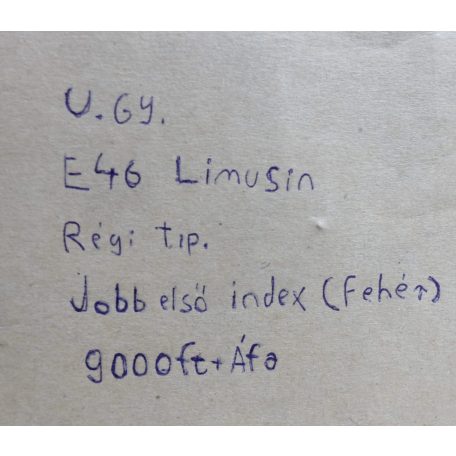 U.Gy.
E46 Limusin
Régi tip.
Jobb első index (Fehér)
9000ft+Áfa